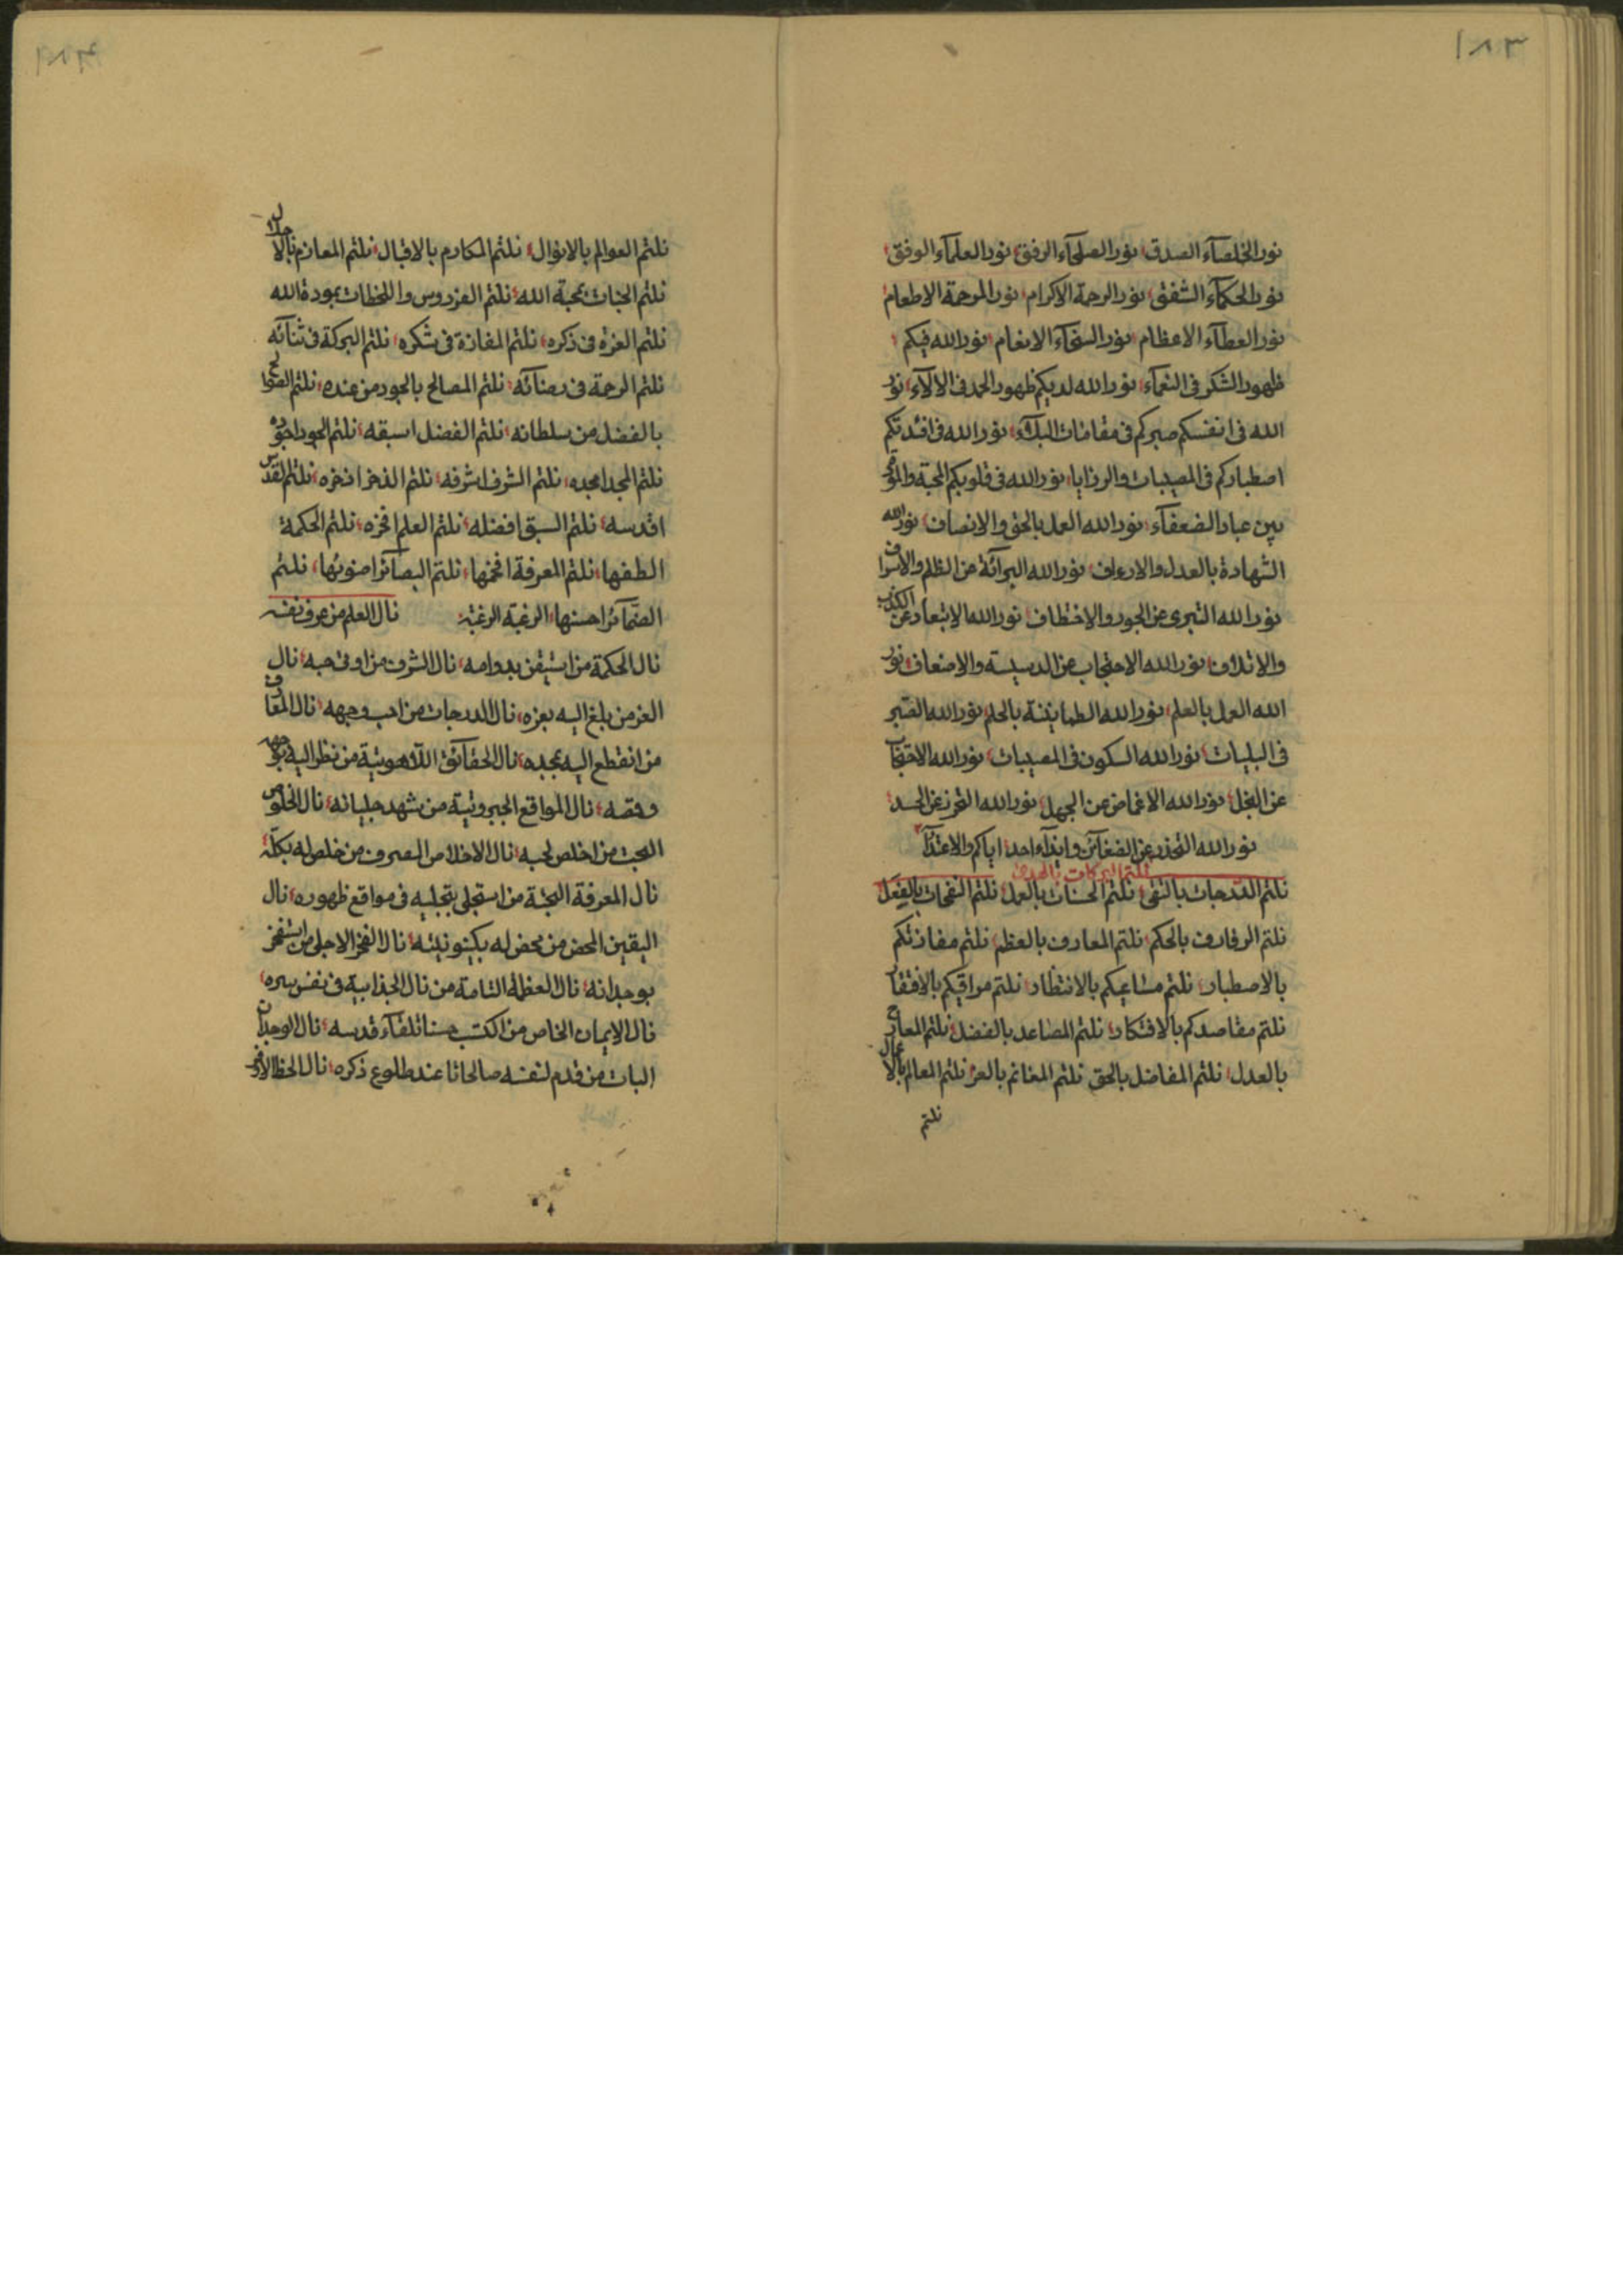 نور الخلصآء الصدق نور الصلحآء الرفق نور العلمآء الوفق
نور الحكمآء الشفق نور الرحمة الاكرام نور المرحمة الاطعام
نور العطآء الاعظام نور السخآء الانعام نور الله فيكم
ظهور الشكر فى النعمآء نور الله لديكم ظهور الحمد فى الالآء نور
الله فى انفسكم صبركم فى مقامات البلآء نور الله فى افئدتكم
اصطباركم فى المصيبات والرزايا نور الله فى قلوبكم المحبة والموده
بين عباد الضعفآء نور الله العمل بالحق والانصاف نور الله
الشهادة بالعدل والارعاف نور الله البرآئة من الظلم والاسراف
نور الله التبرى عن الجور والاختطاف نور الله الابتعاد عن الكذب
والاتلاف نور الله الاحتجاب عن الدسيسة والاضعاف نور
الله العمل بالعلم نور الله الطمانينة بالحلم نور الله الصبر
فى البليات نور الله السكون فى المصيبات نور الله الاجتناب
عن البخل نور الله الاغماض من الجهل نور الله التحرز عن الحسد
نور الله التحذر عن الضغآئن وايذآء احد اياكم والاعتدآء
نلتم البركات بالهدى
نلتم الدرجات بالتقى نلتم الحسنات بالعمل نلتم النفحات بالفعل
نلتم الرفارف بالحكم نلتم المعارف بالعظم نلتم مفازتكم
بالاصطبار نلتم مشاعيكم بالانتظار نلتم مراقيكم بالافتقار
نلتم مقاصدكم بالافتكار نلتم المصاعد بالفضل نلتم المعارج
بالعدل نلتم المفاضل بالحق نلتم المغانم بالعز نلتم المعالم بالاعمال
نلتم
نلتم العوالم بالانوال نلتم المكارم بالاقبال نلتم المعازم بالاجلال
نلتم الجنات بمحبة الله نلتم الفردوس واللحظات بمودة الله
نلتم العزة فى ذكره نلتم المفازة فى شكره نلتم البركة فى ثنآئه
نلتم الرحمة فى رضآئه نلتم المصالح بالجود من عنده نلتم الصوالح
بالفضل من سلطانه نلتم الفضل اسبقه نلتم الجود اجوده
نلتم المجد امجده نلتم الشرف اشرفه نلتم الذخر اذخره نلتم القدس
اقدسه نلتم السبق افضله نلتم العلم افخره نلتم الحكمة
الطفها نلتم المعرفة افخمها نلتم البصآئر اصوبها نلتم
الضمآئر احسنها الرغبة الرغبة نال العلم من عرف نفسه
نال الحكمة من استيقن بدوامه نال الشرف من اوفى حبه نال
العز من بلغ اليه بعزه نال الدرجات من احب وجهه نال المعارف
من انقطع اليه بمجده نال الحقآئق اللاهوتية من نظر اليه
نال المواقع الجبروتية من شهد جليانه نال الخلوص
البحت من اخلص لحبه نال الاخلاص الصرف من خلص له بكله
نال المعرفة البحتة من استجلى بتجليه فى مواقع ظهوره نال
اليقين المحض من محض له بكينونيته نال الفخر الاجلى من استفخر
بوجدانه نال العظمة التامة من نال الجذابية فى نفس سره
نال الايمان الخاص من اكتسب حسنا تلقآء قدسه نال الوجدان
البات من قدم لنفسه صالحاتا عند طلوع ذكره نال الحظ الاوفر